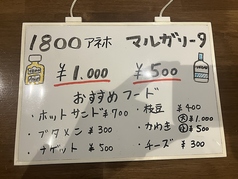 1800 アネホ マルガリータ
¥1.000 ¥500
おすすめフード
・ホットサンド ¥700 ・枝豆 ¥400
・ブタメン ¥300 ・かわき 大 ¥1.000
小 ¥500
・ナゲット ¥500 ・チーズ ¥300